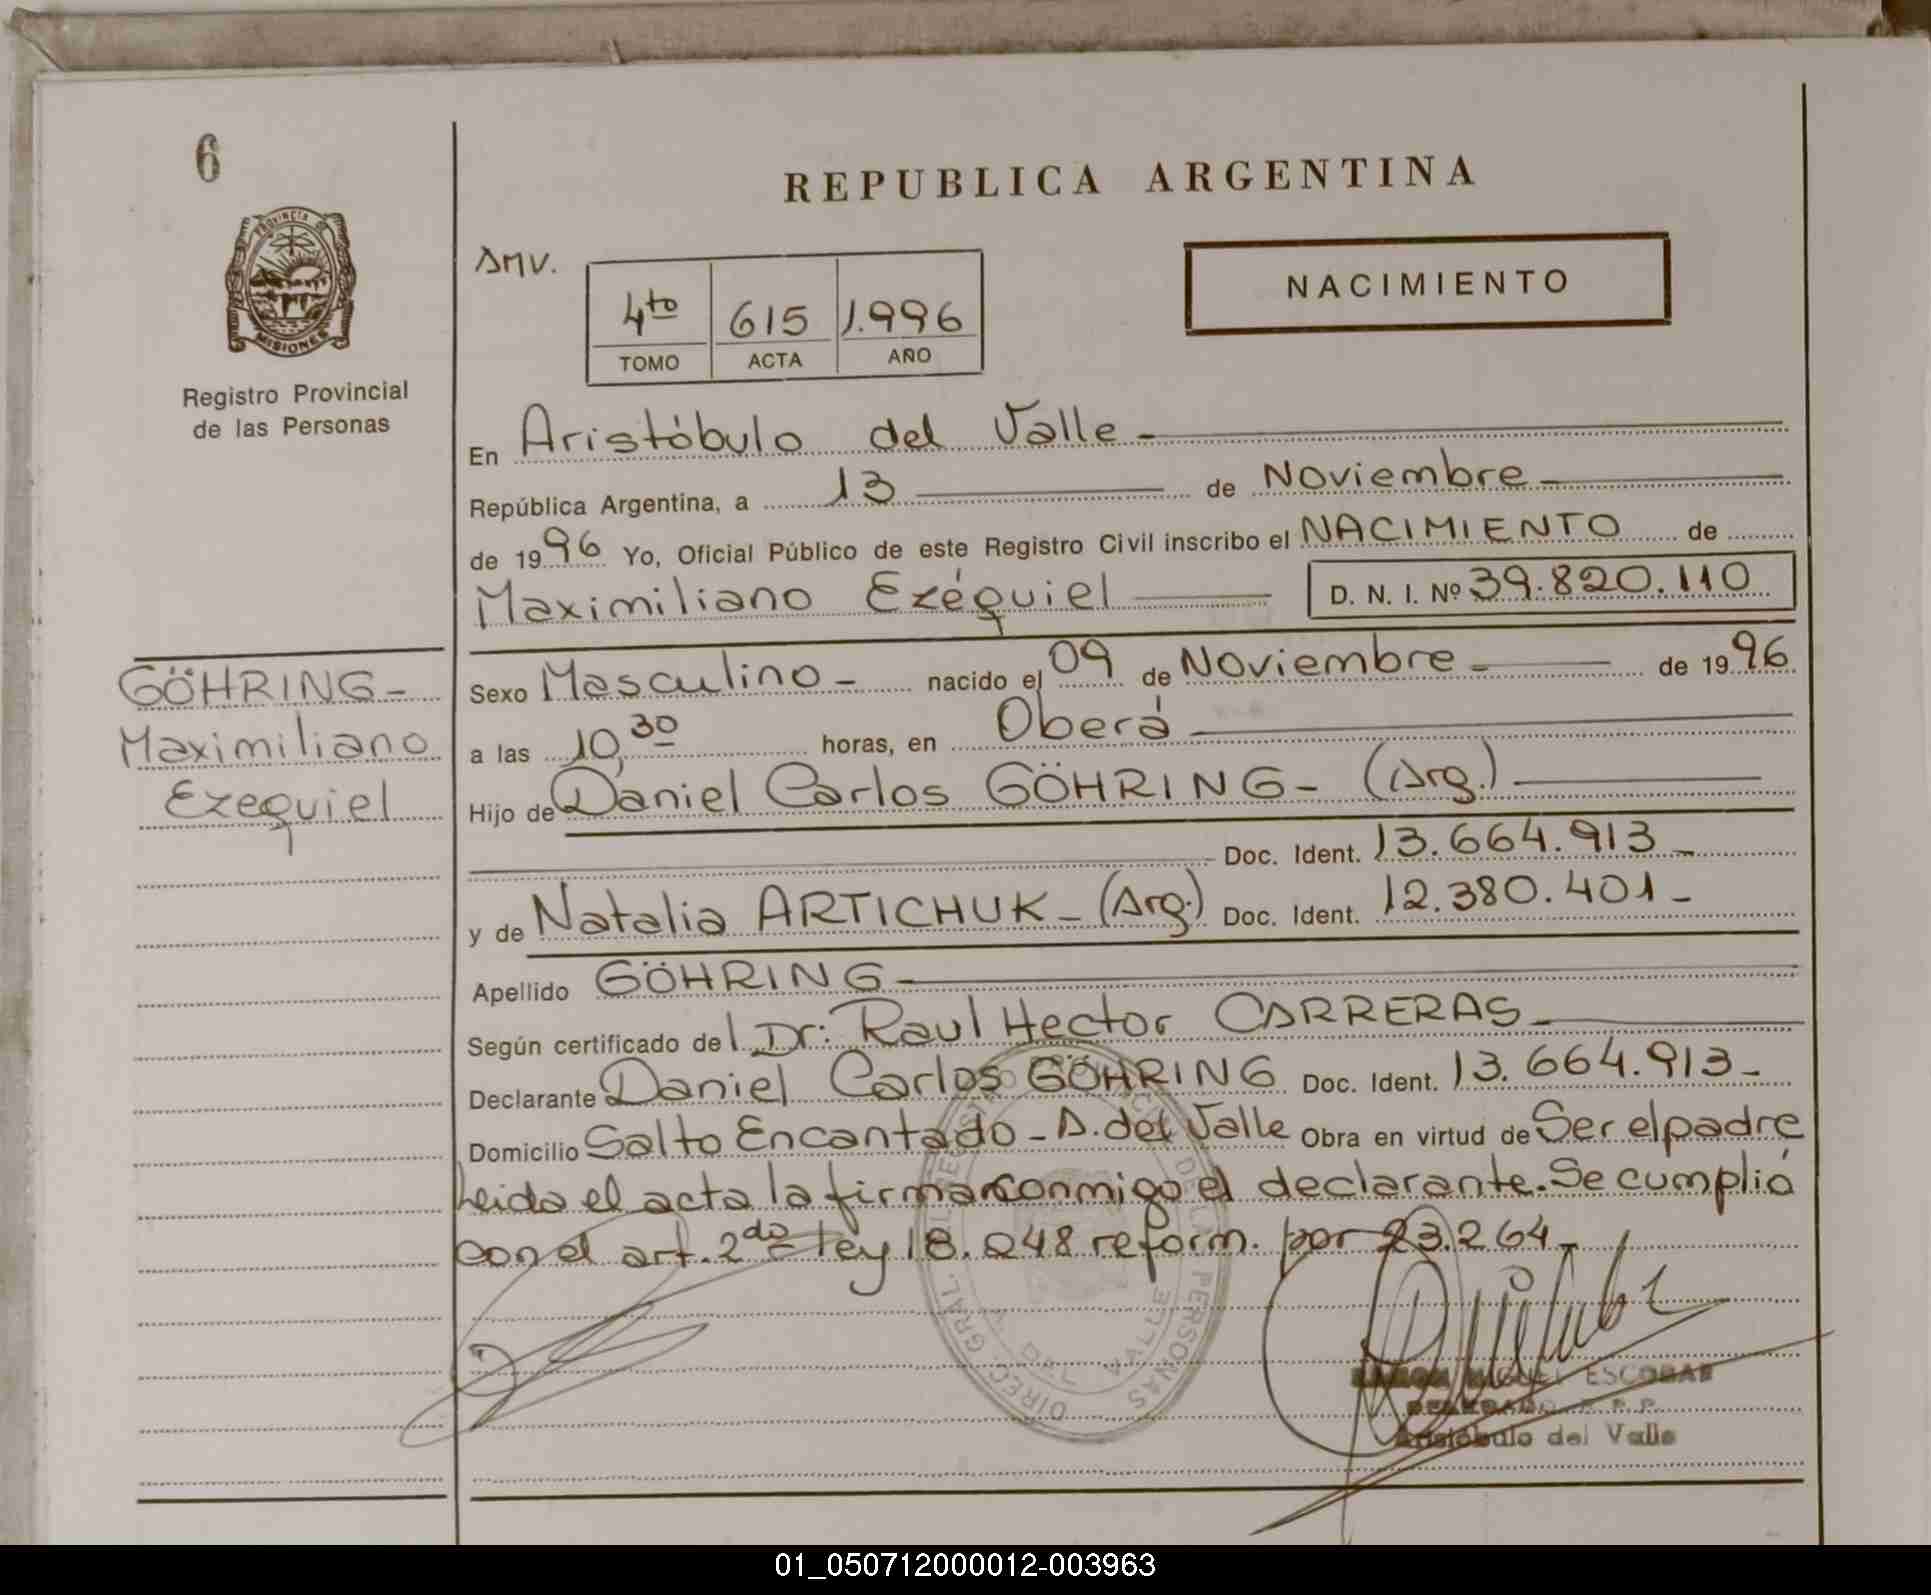 6
PROVINCIA DE
MISIONES
Registro Provincial
de las Personas
REPUBLICA ARGENTINA
AMV.
4to 615 1.996
TOMO ACTA AÑO
NACIMIENTO
En Aristóbulo del Valle -
República Argentina, a 13 de Noviembre
de 1996 Yo, Oficial Público de este Registro Civil inscribo el NACIMIENTO de
Maximiliano Ezéquiel D. N. I. Nº 39.820.110
GÖHRING -
Maximiliano
Ezequiel
Sexo Masculino - nacido el 09 de Noviembre - de 1996
a las 10,30 horas, en Oberá
Hijo de Daniel Carlos GÖHRING - (Arg.)
Doc. Ident. 13.664.913 -
y de Natalia ARTICHUK - (Arg.) Doc. Ident. 12.380.401 -
Apellido GÖHRING -
Según certificado del Dr: Raul Hector CARRERAS -
Declarante Daniel Carlos GÖHRING Doc. Ident. 13.664.913 -
Domicilio Salto Encantado - A. del Valle Obra en virtud de Ser el padre
Leida el acta la firma conmigo el declarante. Se cumplió
con el art. 2do ley 18.248 reform. por 23.264 -
MIGUEL ESCOBAR
Aristóbulo del Valle
01_050712000012-003963